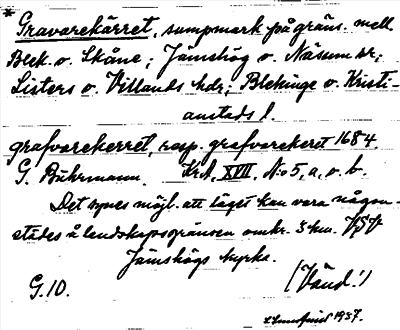 * Gravarekärret, sumpmark på gräns. mell.
Blek. o. Skåne; Jämshög o. Näsum sr;
Listers o. Villands hdr; Blekinge o. Kristi-
anstads l.
grafvarekerret, resp. grafvarekeret 1684.
G. Buhrmann. KrA, XVII, No 5, a, o. b.
Det synes möjl. att läget kan vara någon-
städes å landskapsgränsen omkr. 3 km. VSV
Jämshögs kyrka.
G.10. (Vänd!)
1937.